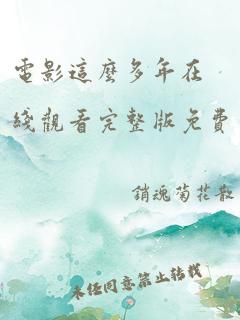 電影這麼多年在
綫觀看完整版免費
銷魂菊花散
未經同意禁止轉載